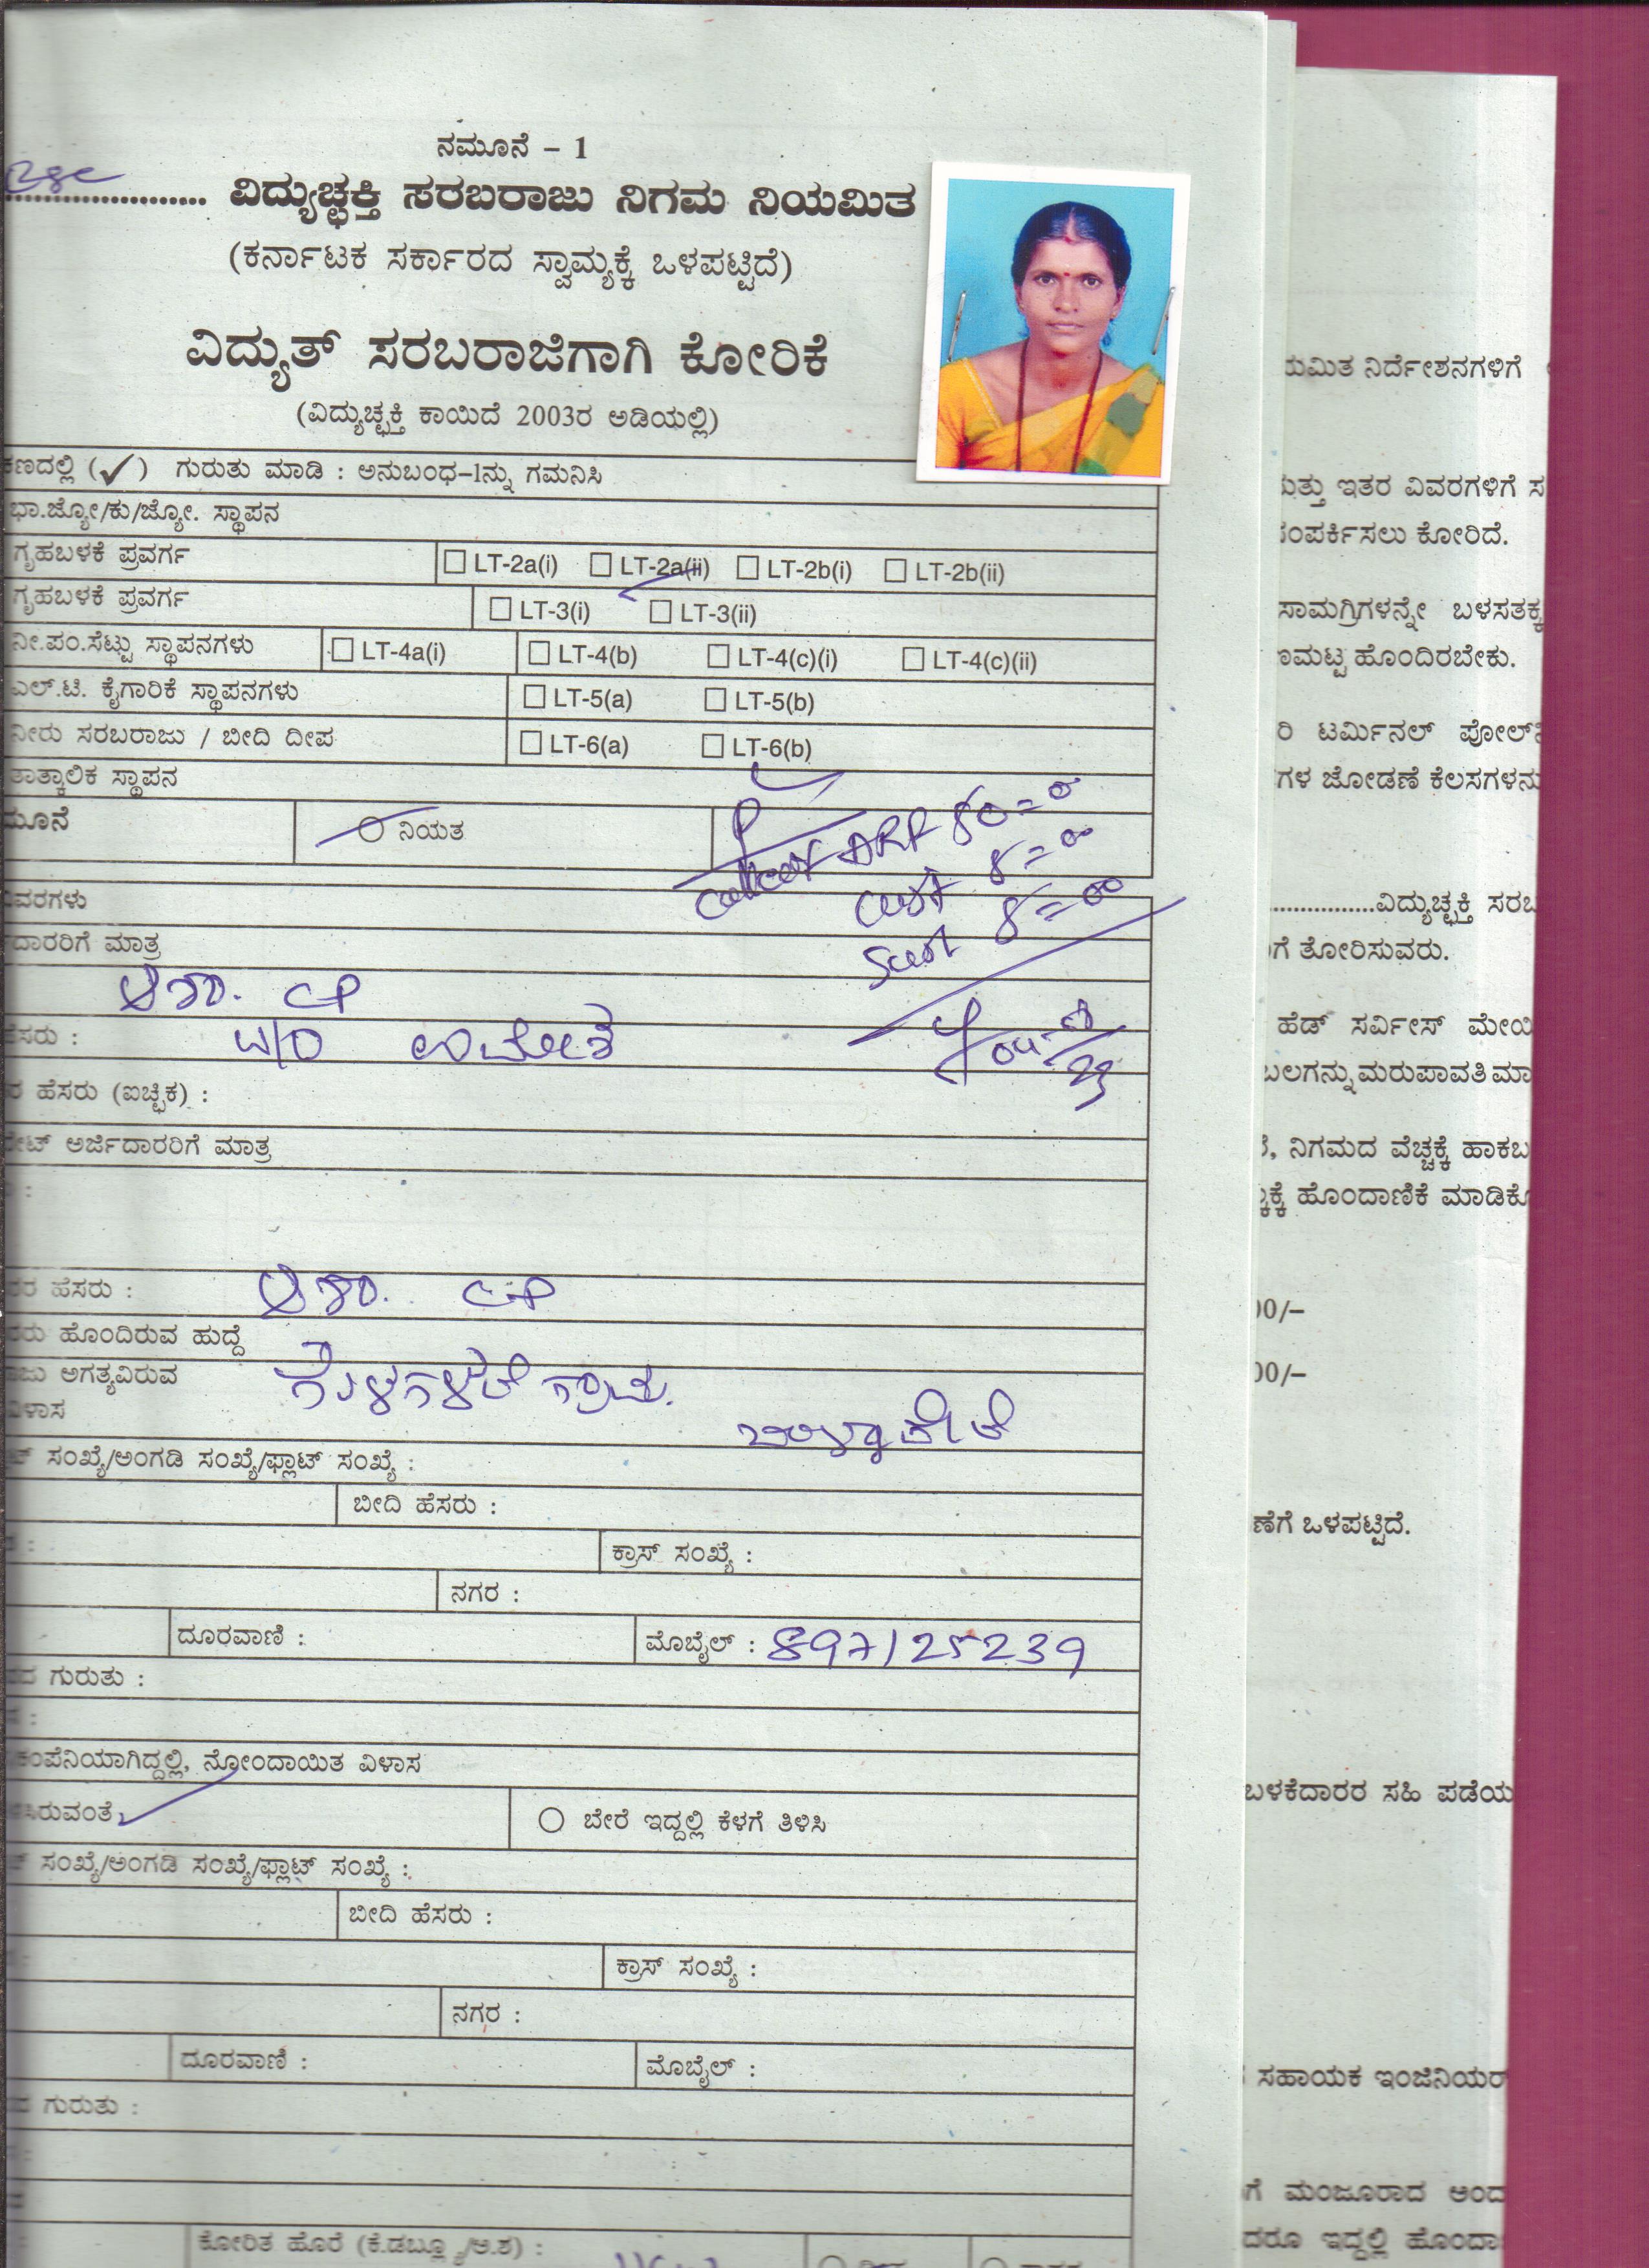 ನಮೂನೆ – 1
..................... ವಿದ್ಯುಚ್ಛಕ್ತಿ ಸರಬರಾಜು ನಿಗಮ ನಿಯಮಿತ
(ಕರ್ನಾಟಕ ಸರ್ಕಾರದ ಸ್ವಾಮ್ಯಕ್ಕೆ ಒಳಪಟ್ಟಿದೆ)
ವಿದ್ಯುತ್ ಸರಬರಾಜಿಗಾಗಿ ಕೋರಿಕೆ
(ವಿದ್ಯುಚ್ಛಕ್ತಿ ಕಾಯಿದೆ 2003ರ ಅಡಿಯಲ್ಲಿ)
ಕಣದಲ್ಲಿ (✓) ಗುರುತು ಮಾಡಿ : ಅನುಬಂಧ–1ನ್ನು ಗಮನಿಸಿ
ಭಾ.ಜ್ಯೋ/ಕು/ಜ್ಯೋ. ಸ್ಥಾಪನ
ಗೃಹಬಳಕೆ ಪ್ರವರ್ಗ LT-2a(i) LT-2a(ii) LT-2b(i) LT-2b(ii)
ಗೃಹಬಳಕೆ ಪ್ರವರ್ಗ LT-3(i) LT-3(ii)
ನೀ.ಪಂ.ಸೆಟ್ಟು ಸ್ಥಾಪನಗಳು LT-4a(i) LT-4(b) LT-4(c)(i) LT-4(c)(ii)
ಎಲ್.ಟಿ. ಕೈಗಾರಿಕೆ ಸ್ಥಾಪನಗಳು LT-5(a) LT-5(b)
ನೀರು ಸರಬರಾಜು / ಬೀದಿ ದೀಪ LT-6(a) LT-6(b)
ತಾತ್ಕಾಲಿಕ ಸ್ಥಾಪನ
ಮೂನೆ ನಿಯತ
ವಿವರಗಳು
ದಾರರಿಗೆ ಮಾತ್ರ
CP
ಹೆಸರು : W/O ಉಮೇಶ
ರ ಹೆಸರು (ಐಚ್ಛಿಕ) :
ೇಟ್ ಅರ್ಜಿದಾರರಿಗೆ ಮಾತ್ರ
:
ರ ಹೆಸರು : CP
ರು ಹೊಂದಿರುವ ಹುದ್ದೆ
ಜು ಅಗತ್ಯವಿರುವ
ವಿಳಾಸ
ಟ್ ಸಂಖ್ಯೆ/ಅಂಗಡಿ ಸಂಖ್ಯೆ/ಫ್ಲಾಟ್ ಸಂಖ್ಯೆ :
ಬೀದಿ ಹೆಸರು :
ಕ್ರಾಸ್ ಸಂಖ್ಯೆ :
ನಗರ :
ದೂರವಾಣಿ : ಮೊಬೈಲ್ : 897125239
ದ ಗುರುತು :
:
ಕಂಪೆನಿಯಾಗಿದ್ದಲ್ಲಿ, ನೋಂದಾಯಿತ ವಿಳಾಸ
ಸಿರುವಂತೆ ಬೇರೆ ಇದ್ದಲ್ಲಿ ಕೆಳಗೆ ತಿಳಿಸಿ
ಟ್ ಸಂಖ್ಯೆ/ಅಂಗಡಿ ಸಂಖ್ಯೆ/ಫ್ಲಾಟ್ ಸಂಖ್ಯೆ :
ಬೀದಿ ಹೆಸರು :
ಕ್ರಾಸ್ ಸಂಖ್ಯೆ :
ನಗರ :
ದೂರವಾಣಿ : ಮೊಬೈಲ್ :
ದ ಗುರುತು :
ಕೋರಿತ ಹೊರೆ (ಕೆ.ಡಬ್ಲ್ಯೂ/ಅ.ಶ) :
ಯಮಿತ ನಿರ್ದೇಶನಗಳಿಗೆ
ಮತ್ತು ಇತರ ವಿವರಗಳಿಗೆ ಸ
ಸಂಪರ್ಕಿಸಲು ಕೋರಿದೆ.
ಸಾಮಗ್ರಿಗಳನ್ನೇ ಬಳಸತಕ್ಕ
ಣಮಟ್ಟ ಹೊಂದಿರಬೇಕು.
ರಿ ಟರ್ಮಿನಲ್ ಪೋಲ್‌
ಗಳ ಜೋಡಣೆ ಕೆಲಸಗಳನು
.................ವಿದ್ಯುಚ್ಛಕ್ತಿ ಸರಬ
ಗೆ ತೋರಿಸುವರು.
ಹೆಡ್ ಸರ್ವೀಸ್ ಮೇಯಿ
ಬಲಗನ್ನು ಮರುಪಾವತಿ ಮಾ
, ನಿಗಮದ ವೆಚ್ಚಕ್ಕೆ ಹಾಕಬ
ಕ್ಕೆ ಹೊಂದಾಣಿಕೆ ಮಾಡಿಕೊ
00/–
00/–
ಣೆಗೆ ಒಳಪಟ್ಟಿದೆ.
ಬಳಕೆದಾರರ ಸಹಿ ಪಡೆಯ
ಸಹಾಯಕ ಇಂಜಿನಿಯರ್
ಗೆ ಮಂಜೂರಾದ ಅಂದ
ದರೂ ಇದ್ದಲ್ಲಿ ಹೊಂದಾ